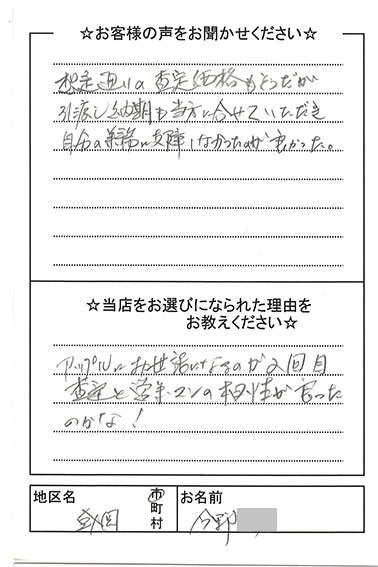 ☆お客様の声をお聞かせください☆
想定通りの査定価格もそうだが
引渡し納期も当方に合せていただき
自分の業務に支障しなかったのが良かった。
☆当店をお選びになられた理由を
お教えください☆
アップルにお世話になるのが2回目
査定と営業マンの相性が良かった
のかな!
地区名
市
町
村
お名前
今野